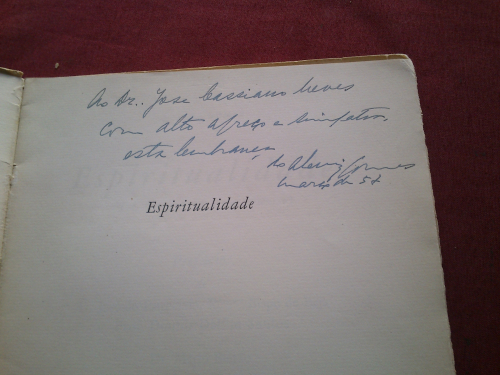 Ao Dr. José Cassiano Neves
com alto apreço e simpatia,
esta lembrança
do Gomes
março de 57
Espiritualidade